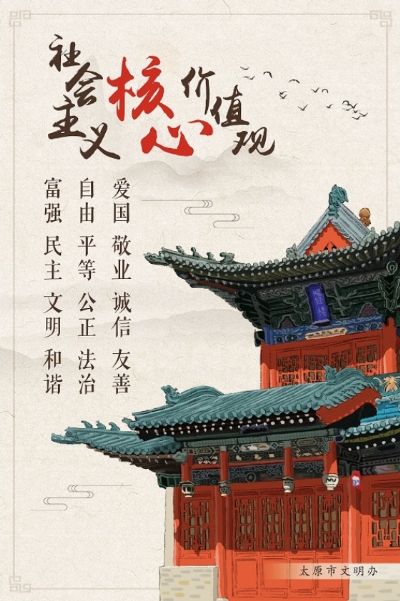 社会主义核心价值观
富强 民主 文明 和谐
自由 平等 公正 法治
爱国 敬业 诚信 友善
太原市文明办